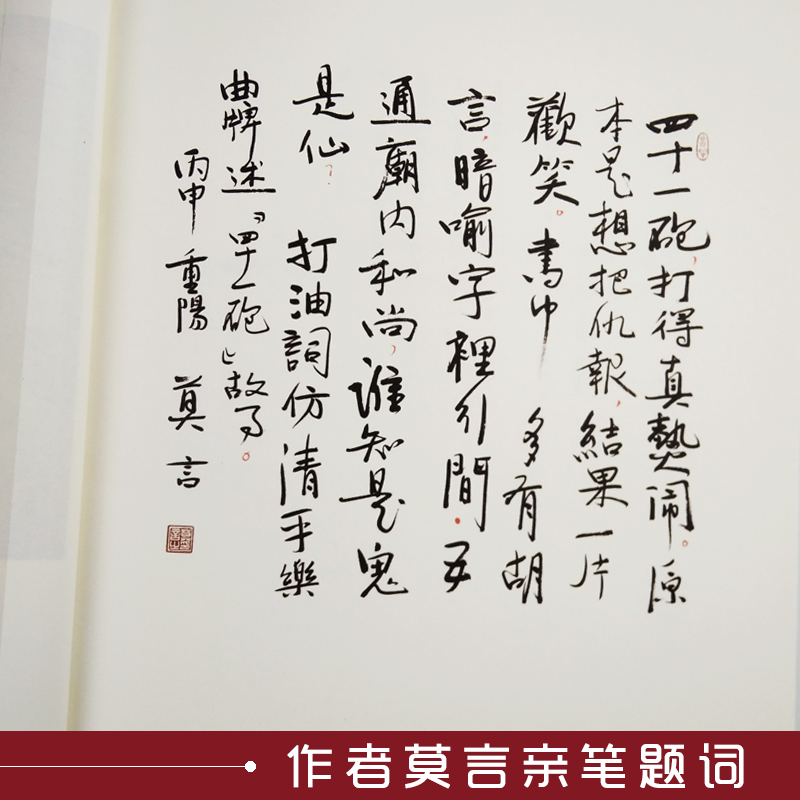 四十一砲，打得真熱闹。原
本是想把仇報，結果一片
歡笑。書中多有胡
言，暗喻字裡引間。五
通廟内和尚，誰知是鬼
是仙？打油詞仿清平樂
曲牌述「四十一砲」故事。
丙申重陽 莫言
作者莫言亲笔题词